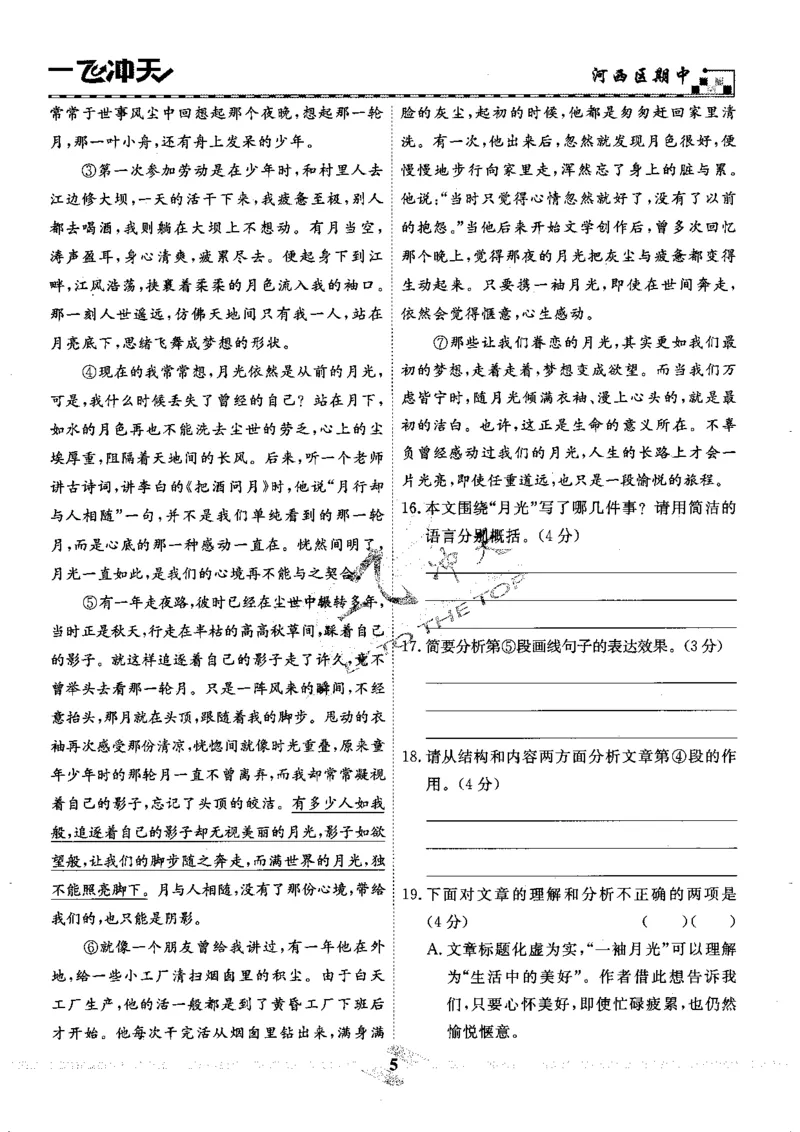 一飞冲天
河西区期中
常常于世事风尘中回想起那个夜晚,想起那一轮
月,那一叶小舟,还有舟上发呆的少年。
③第一次参加劳动是在少年时,和村里人去
江边修大坝,一天的活干下来,我疲惫至极,别人
都去喝酒,我则躺在大坝上不想动。有月当空,
涛声盈耳,身心清爽,疲累尽去。便起身下到江
畔,江风浩荡,挟裹着柔柔的月色流入我的袖口。
那一刻人世遥远,仿佛天地间只有我一人,站在
月亮底下,思绪飞舞成梦想的形状。
④现在的我常常想,月光依然是从前的月光,
可是,我什么时候丢失了曾经的自己?站在月下,
如水的月色再也不能洗去尘世的劳乏,心上的尘
埃厚重,阻隔着天地间的长风。后来,听一个老师
讲古诗词,讲李白的《把酒问月》时,他说“月行却
与人相随”一句,并不是我们单纯看到的那一轮
月,而是心底的那一种感动一直在。恍然间明了,
月光一直如此,是我们的心境再不能与之契合。
⑤有一年走夜路,彼时已经在尘世中辗转多年,
当时正是秋天,行走在半枯的高高秋草间,踩着自己
的影子。就这样追逐着自己的影子走了许久,竟不
曾举头去看那一轮月。只是一阵风来的瞬间,不经
意抬头,那月就在头顶,跟随着我的脚步。甩动的衣
袖再次感受那份清凉,恍惚间就像时光重叠,原来童
年少年时的那轮月一直不曾离弃,而我却常常凝视
着自己的影子,忘记了头顶的皎洁。有多少人如我
般,追逐着自己的影子却无视美丽的月光,影子如欲
望般,让我们的脚步随之奔走,而满世界的月光,独
不能照亮脚下。月与人相随,没有了那份心境,带给
我们的,也只能是阴影。
⑥就像一个朋友曾给我讲过,有一年他在外
地,给一些小工厂清扫烟囱里的积尘。由于白天
工厂生产,他的活一般都是到了黄昏工厂下班后
才开始。他每次干完活从烟囱里钻出来,满身满
脸的灰尘,起初的时候,他都是匆匆赶回家里清
洗。有一次,他出来后,忽然就发现月色很好,便
慢慢地步行向家里走,浑然忘了身上的脏与累。
他说:“当时只觉得心情忽然就好了,没有了以前
的抱怨。”当他后来开始文学创作后,曾多次回忆
那个晚上,觉得那夜的月光把灰尘与疲惫都变得
生动起来。只要携一袖月光,即使在世间奔走,
依然会觉得惬意,心生感动。
⑦那些让我们眷恋的月光,其实更如我们最
初的梦想,走着走着,梦想变成欲望。而当我们万
虑皆宁时,随月光倾满衣袖、漫上心头的,就是最
初的洁白。也许,这正是生命的意义所在。不辜
负曾经感动过我们的月光,人生的长路上才会一
片光亮,即使任重道远,也只是一段愉悦的旅程。
16.本文围绕“月光”写了哪几件事?请用简洁的
语言分别概括。(4分)
17.简要分析第⑤段画线句子的表达效果。(3分)
18.请从结构和内容两方面分析文章第④段的作
用。(4分)
19.下面对文章的理解和分析不正确的两项是
(4分) ( )( )
A.文章标题化虚为实,“一袖月光”可以理解
为“生活中的美好”。作者借此想告诉我
们,只要心怀美好,即使忙碌疲累,也仍然
愉悦惬意。
5